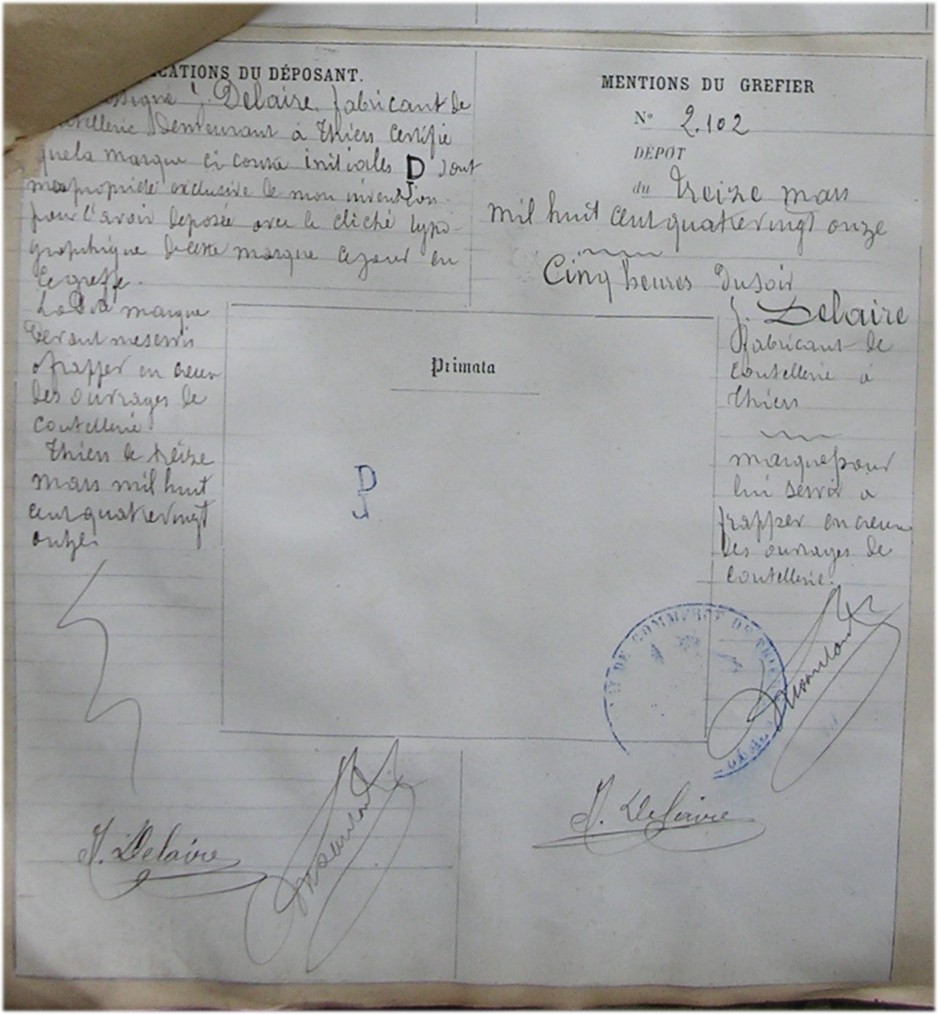 CATIONS DU DÉPOSANT.
J. Delaire fabricant de
coutellerie demeurant à Thiers certifie
que la marque ci contre initiales D J sont
ma propriété exclusive de mon invention
pour l'avoir déposée avec le cliché typo
graphique de cette marque ce jour au
Le greffe.
La dite marque
devant me servir
a frapper en creux
des ouvrages de
coutellerie
Thiers le treize
mars mil huit
cent quatre vingt
onze
J. Delaire
Primata
D
J
MENTIONS DU GREFIER
N° 2.102
DÉPÔT
du treize mars
mil huit cent quatre vingt onze
Cinq heures du soir
J. Delaire
fabricant de
coutellerie à
Thiers
marque pour
lui servir a
frapper en creux
des ouvrages de
coutellerie.
DE COMMERCE DE THIERS
J. Delaire